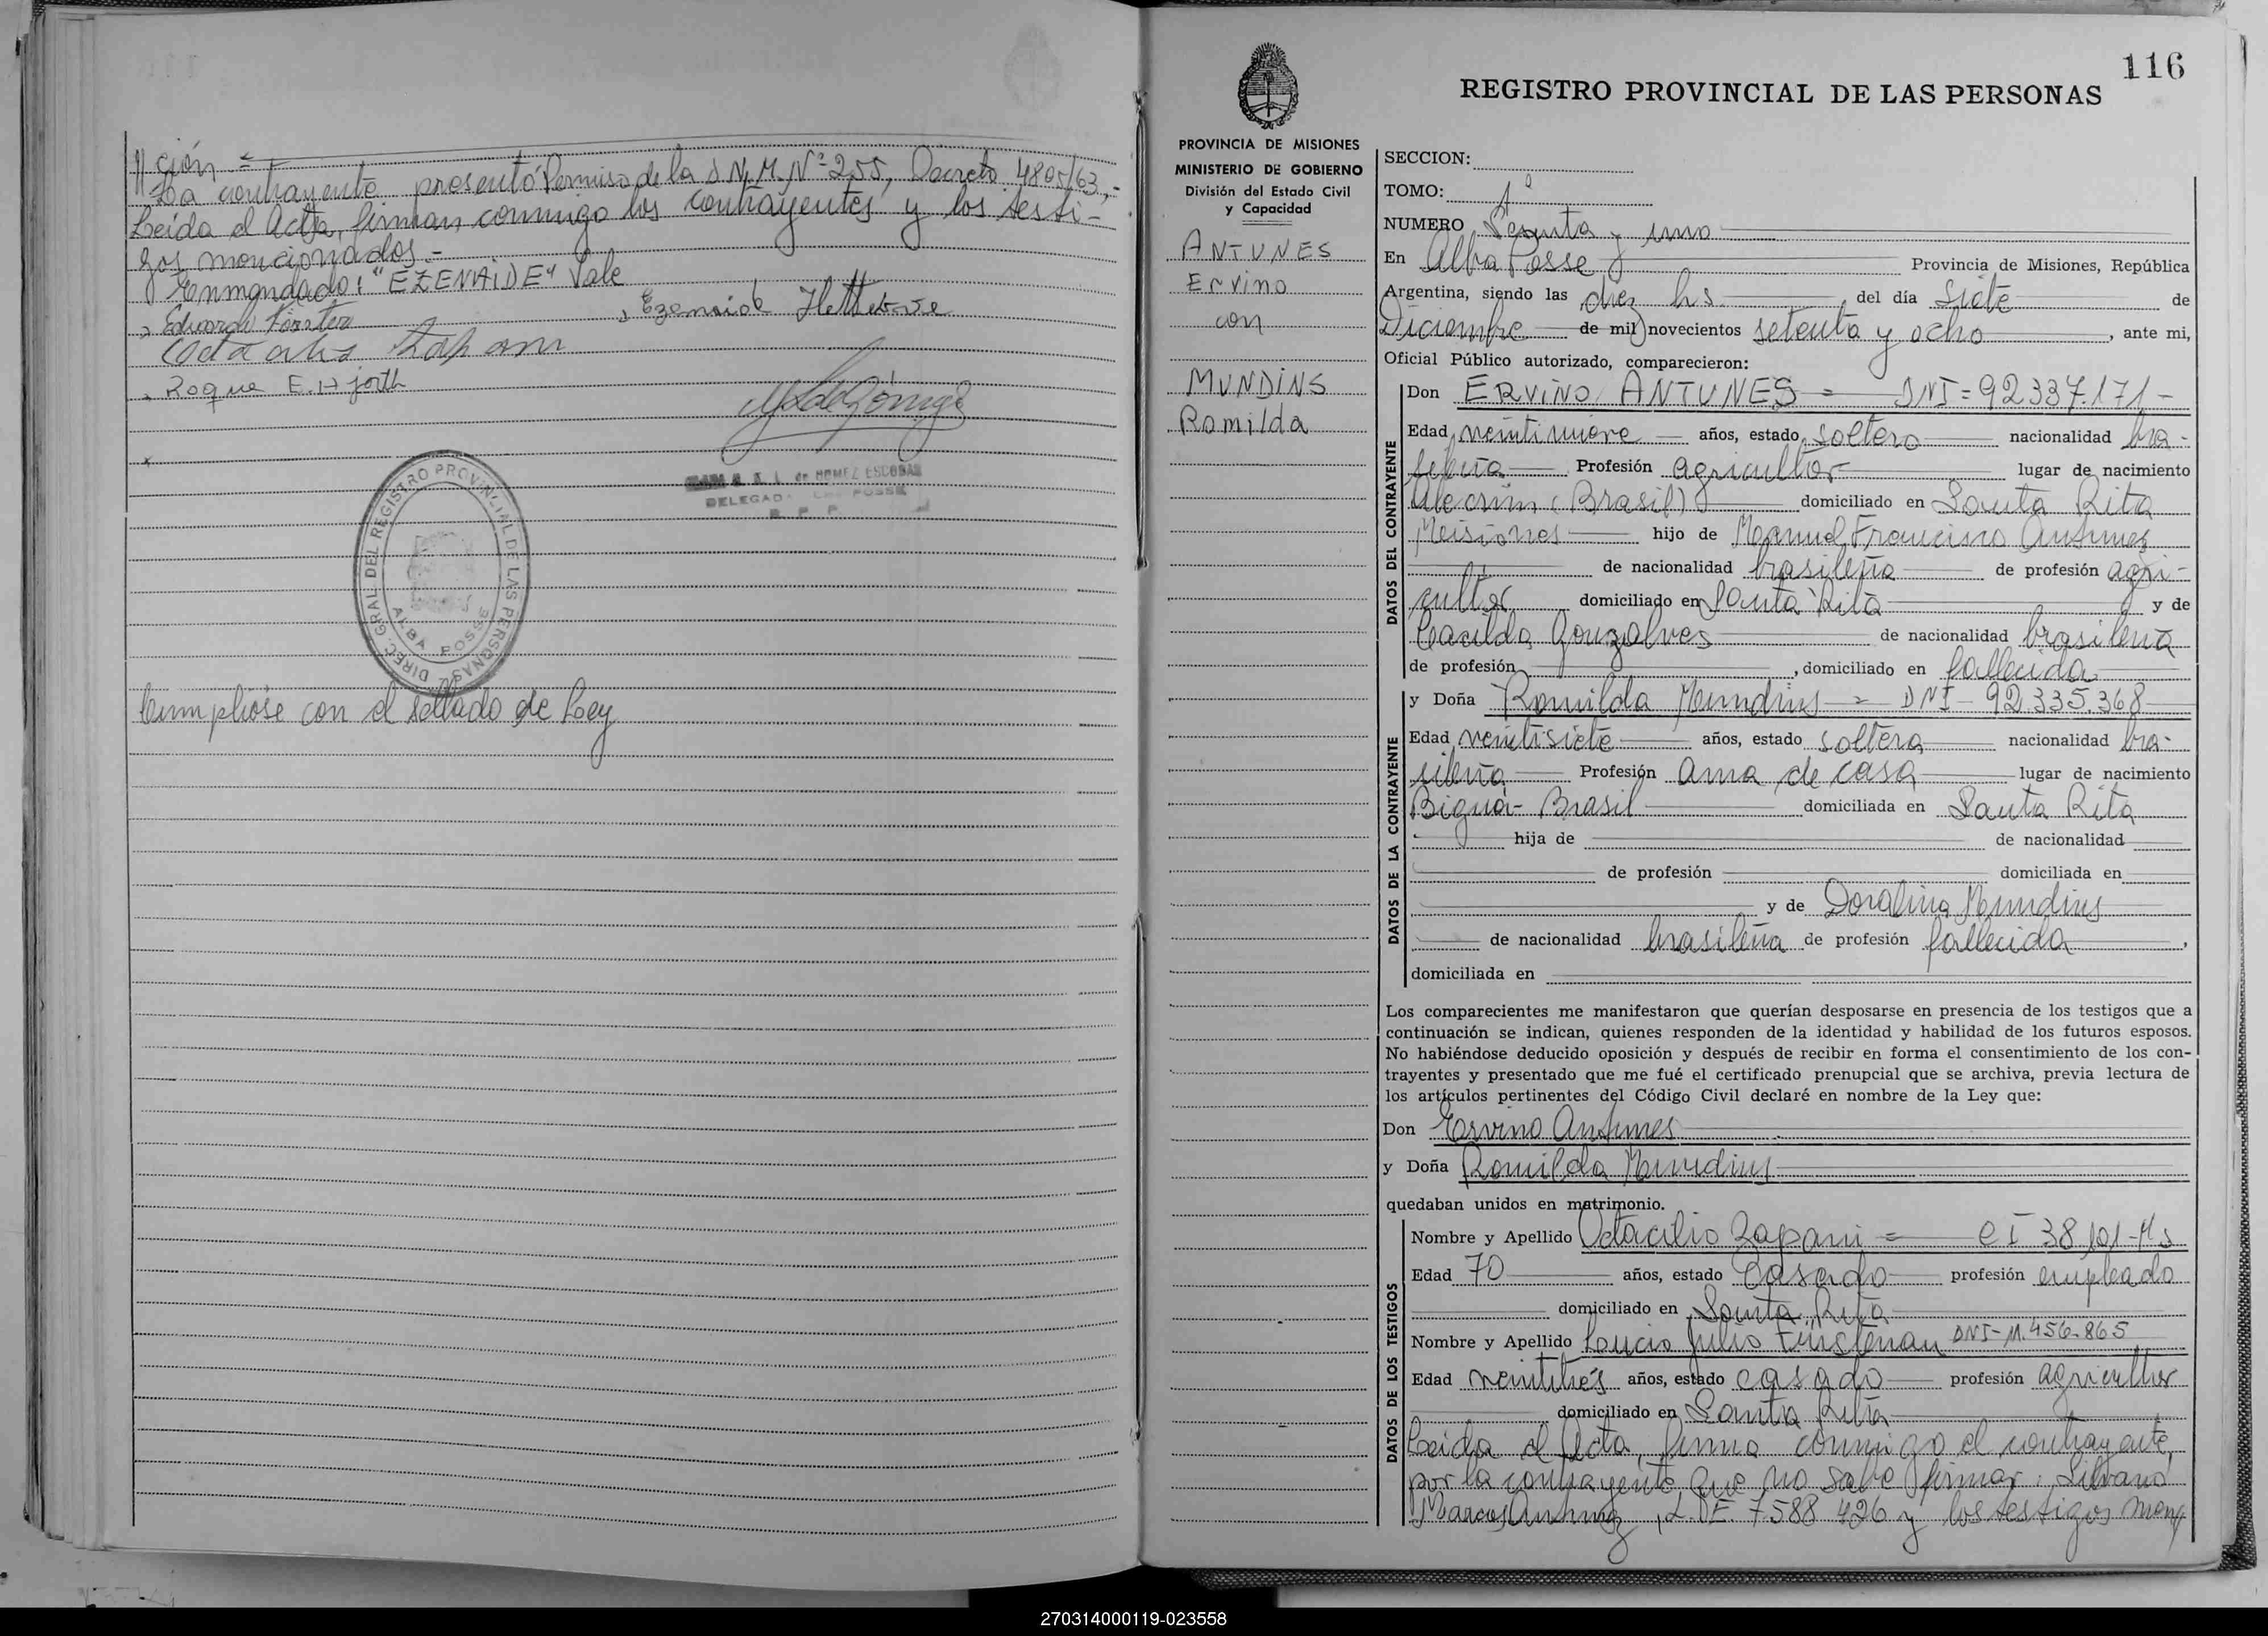 //ción.=
La contrayente presentó Permiso de la D.N.M. Nº 255, Decreto 4805/63,-
Leída el Acta, firman conmigo los contrayentes y los testi-
gos mencionados.-
Enmendado: "EZENAIDE" Vale
Eduardo Förster
Ezenaide
Roque E. Hjorth
DELEGADA
R. P. P.
DIREC. GRAL. DEL REGISTRO PROVINCIAL DE LAS PERSONAS
ALBA POSSE
Cumplióse con el sellado de Ley
116
REGISTRO PROVINCIAL DE LAS PERSONAS
PROVINCIA DE MISIONES
MINISTERIO DE GOBIERNO
División del Estado Civil
y Capacidad
ANTUNES
Ervino
con
MUNDINS
Romilda
SECCION:
TOMO: 1º
NUMERO Sesenta y uno
En Alba Posse Provincia de Misiones, República
Argentina, siendo las diez hs del día Siete de
Diciembre de mil novecientos setenta y ocho, ante mi,
Oficial Público autorizado, comparecieron:
DATOS DEL CONTRAYENTE
Don ERVINO ANTUNES = DNI = 92337.171 -
Edad veintinueve años, estado soltero nacionalidad bra-
sileña Profesión agricultor lugar de nacimiento
Alecrim (Brasil) domiciliado en Santa Rita
Misiones hijo de Manuel Francisco Antunes
de nacionalidad brasileña de profesión agri-
cultor domiciliado en Santa Rita y de
Cacilda Gonzalves de nacionalidad brasilena
de profesión, domiciliado en fallecida
DATOS DE LA CONTRAYENTE
y Doña Romilda Mundins = DNI - 92.335.368
Edad veintisiete años, estado soltera nacionalidad bra-
sileña Profesión ama de casa lugar de nacimiento
Biguá- Brasil domiciliada en Santa Rita
hija de de nacionalidad
de profesión domiciliada en
y de Doralina Mundins
de nacionalidad brasileña de profesión fallecida,
domiciliada en
Los comparecientes me manifestaron que querían desposarse en presencia de los testigos que a
continuación se indican, quienes responden de la identidad y habilidad de los futuros esposos.
No habiéndose deducido oposición y después de recibir en forma el consentimiento de los con-
trayentes y presentado que me fué el certificado prenupcial que se archiva, previa lectura de
los artículos pertinentes del Código Civil declaré en nombre de la Ley que:
Don Ervino Antunes
y Doña Romilda Mundins
quedaban unidos en matrimonio.
DATOS DE LOS TESTIGOS
Nombre y Apellido Octacilio Zapani = CI 38.101-Ms
Edad 70 años, estado Casado profesión empleado
domiciliado en Santa Rita
Nombre y Apellido Lucio Julio Fürstenau DNI-11.456.865
Edad veintitrés años, estado casado profesión agricultor
domiciliado en Santa Rita
Leída el Acta, firma conmigo el contrayente,
por la contrayente que no sabe firmar: Silvano
Marcos Antunez, L.DE. 7.588.426 y los testigos menc
270314000119-023558